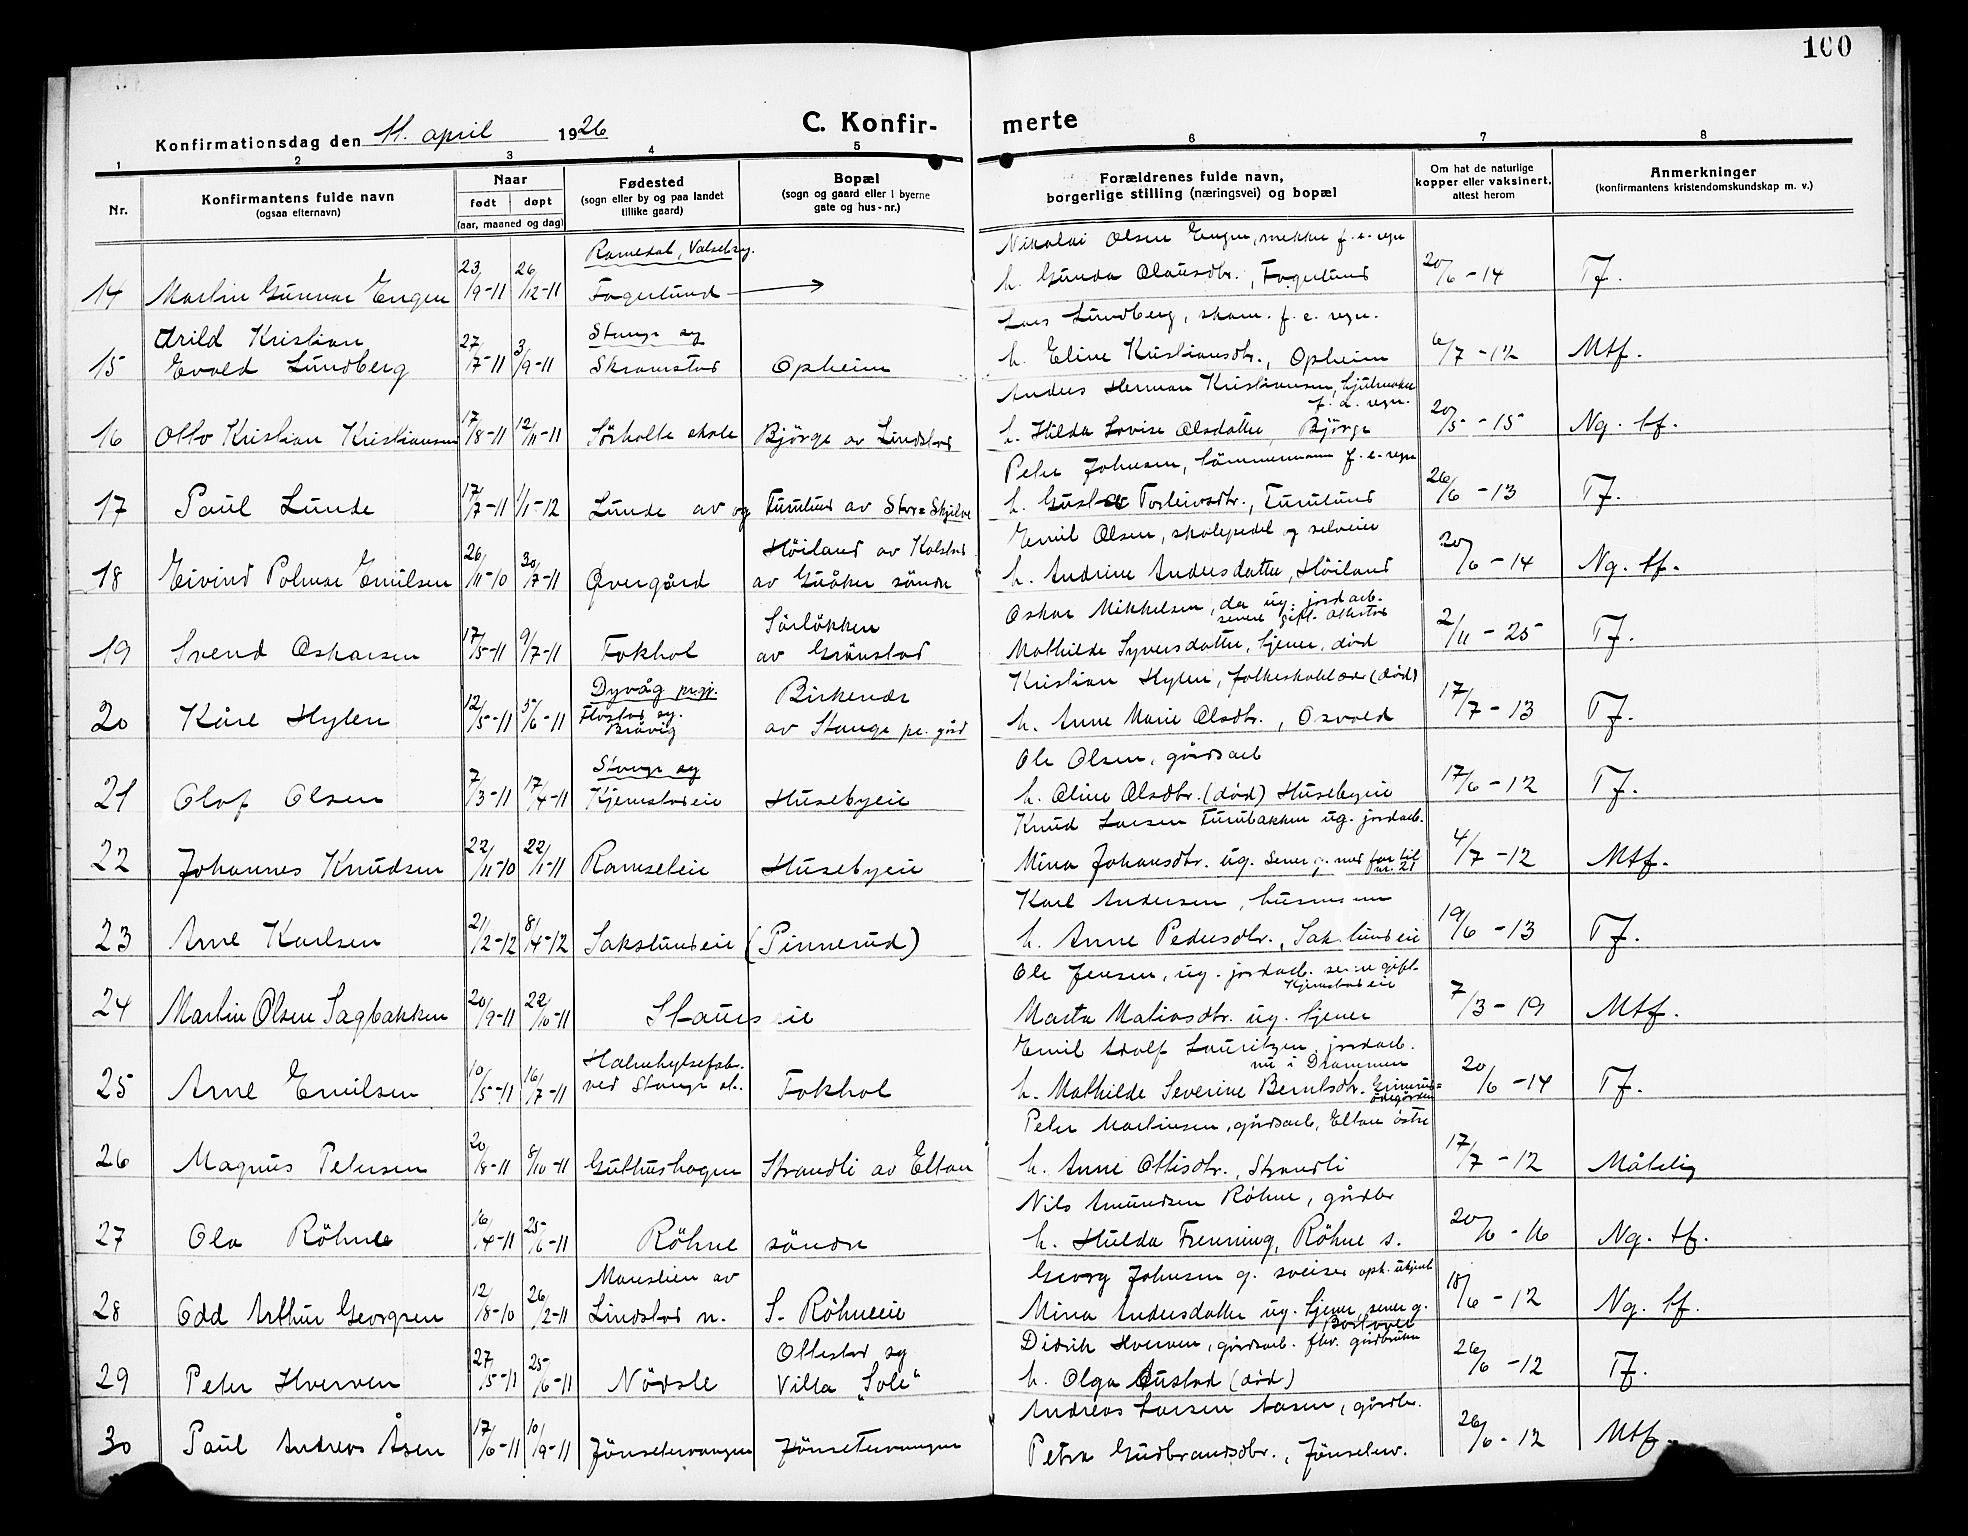 100
Konfirmationsdag den 11. april 1926
C. Konfir-
merte
1 2 3 4 5 6 7 8
Nr.
Konfirmantens fulde navn
(ogsaa efternavn)
Naar
født døpt
(aar, maaned og dag)
Fødested
(sogn eller by og paa landet
tillike gaard)
Bopæl
(sogn og gaard eller i byerne
gate og hus-nr.)
Forældrenes fulde navn,
borgerlige stilling (næringsvei) og bopæl
Om hat de naturlige
kopper eller vaksinert,
attest herom
Anmerkninger
(konfirmantens kristendomskundskap m. v.)
Romedal, Valsetsg. Nikolai Olsen Engen, f. e. regn
14 Martin Gunnar Engen 23/9-11 26/12-11 Fogerlund h. Gunda Olausdtr., Fogerlund 20/6-14 Tf.
Arild Kristian Stange sg Lars Lundberg, skom. f. e. regn.
15 Evald Lundberg 27/7-11 3/9-11 Skramstad Opheim h. Eline Kristiansdtr., Opheim 6/7-12 Mtf.
Anders Herman Kristiansen, hjulmaker
f. e. regn.
16 Otto Kristian Kristiansen 17/8-11 12/11-11 Sörholte skole Björge av Lindstad h. Hilda Lovise Olsdatter, Björge 20/5-15 Ng. tf.
Peter Johnsen, tömmermann f. e. regn
17 Paul Lunde 17/7-11 1/1-12 Lunde av og Furulund av Store Skjelve h. Torleivsdtr., Furulund 26/6-13 Tf.
Höiland av Kolstad Emil Olsen, skolepedel og selveier
18 Eivind Polmar Emilsen 26/11-10 30/7-11 Øvergård av Guåker söndre h. Andrine Andersdatter, Höiland 20/6-14 Ng. tf.
Sörlökken Oskar Mikkelsen, da ug. jordarb.
senere gift
19 Svend Oskarsen 17/5-11 9/7-11 Fokhol av Grönstad Mathilde Syversdatter, tjener, död 2/11-25 Tf.
Dyvåg prgj. Birkenes Kristian Hylen, folkeskolelær (död)
20 Kåre Hylen 12/5-11 5/6-11 Flostad sg. av Stange pr. gård h. Anne Marie Olsdtr., Osvold 17/7-13 Tf.
Stange sg Ole Olsen, gårdsarb
21 Olaf Olsen 7/3-11 17/4-11 Kjemstadeie Husebyeie h. Oline Olsdtr. (död) Husebyeie 17/6-12 Tf.
Knud Larsen Furubakken ug. jordarb.
22 Johannes Knudsen 22/11-10 22/1-11 Ramseteie Husebyeie Mina Johansdtr. ug. sener g. med far til
nr. 21 4/7-12 Mtf.
Karl Andersen, husmann
23 Arne Karlsen 21/2-12 8/4-12 Sakslundeie (Pinnerud) h. Anne Pedersdtr., Sakslundeie 19/6-13 Tf.
Ole Jensen, ug. jordarb. senere gift
Kjemstadeie
24 Martin Olsen Sagbakken 20/9-11 22/10-11 Staurseie Marta Matiasdtr. ug. tjener 7/3-19 Mtf.
Halmhylsefabr. Emil Adolf Lauritzen jordarb.
nu i Drammen
25 Arne Emilsen 10/5-11 16/7-11 ved Stange st. Fokhol h. Mathilde Severine Berntsdtr. 20/6-14 Tf.
Peter Martinsen, gårdsarb, Eltan östre
26 Magnus Petersen 20/8-11 8/10-11 Guthushagen Strandli av Eltan h. Anne Ottisdtr., Strandli 17/7-12 Måtelig
Nils Amundsen Röhne, gårdbr
27 Ola Röhne 16/4-11 25/6-11 Röhne söndre h. Hulda Frenning, Röhne s. 20/6-16 Ng. tf.
Marstien av Georg Johnsen g. sveiser oph. ukjent
28 Odd Arthur Georgsen 12/8-10 26/2-11 Lindstad n. S. Röhneeie Mina Andersdatter ug. tjener, sener g. 18/6-12 Ng. tf.
Ottestad sg Didrik Hverven, gårdsarb. fhv. gårdbruker
29 Peter Hverven 27/5-11 25/6-11 Nödsle Villa „Sole" h. Olga Austad (död) 26/6-12 Tf.
Andreas Larsen Aasen, gårdbr.
30 Paul Andreas Åsen 17/6-11 10/9-11 Jönsetervangen Jönsetervangen Petra Gudbrandsdtr., Jönseterv. 26/6-12 Mtf.